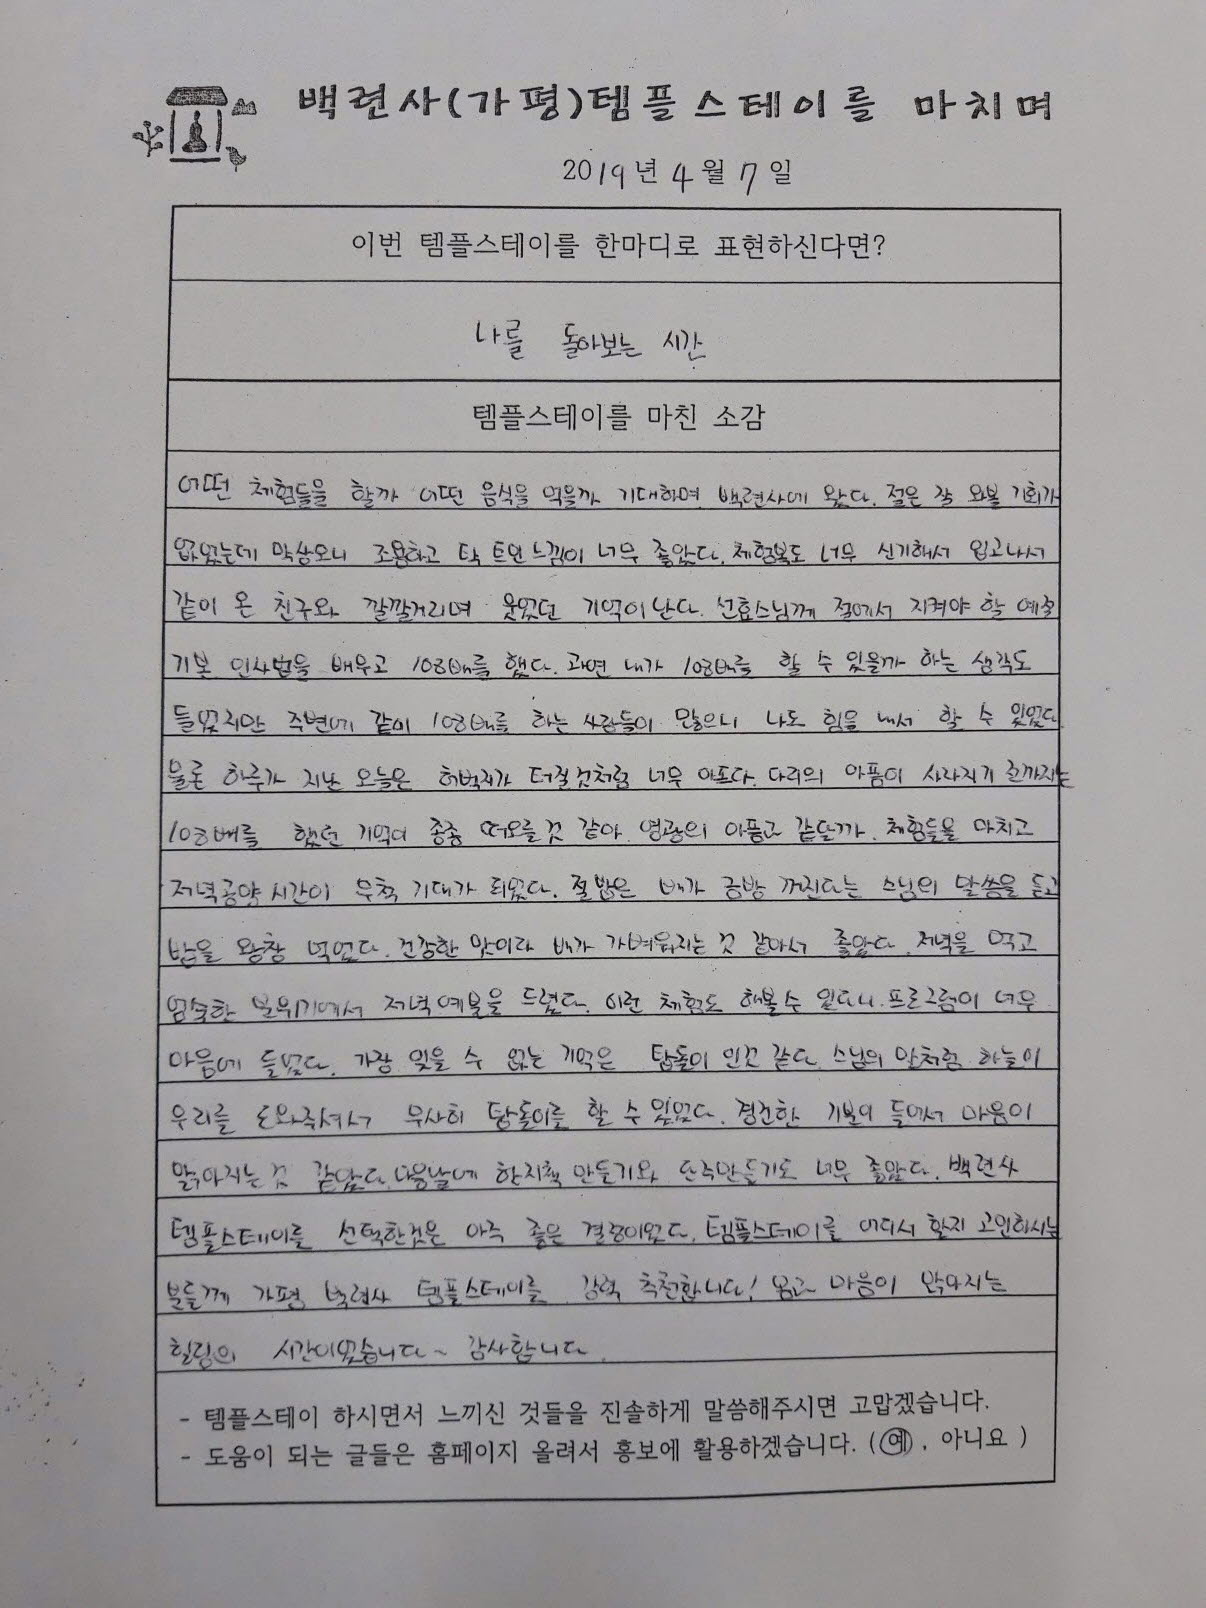 백련사(가평)템플스테이를 마치며
2019년 4월 7일
이번 템플스테이를 한마디로 표현하신다면?
나를 돌아보는 시간
템플스테이를 마친 소감
어떤 체험들을 할까 어떤 음식을 먹을까 기대하며 백련사에 왔다. 절은 잘 와볼 기회가
없었는데 막상오니 조용하고 탁 트인 느낌이 너무 좋았다. 체험복도 너무 신기해서 입고나서
같이 온 친구와 깔깔거리며 웃었던 기억이 난다. 선효스님께 절에서 지켜야 할 예절
기본 인사법을 배우고 108배를 했다. 과연 내가 108배를 할 수 있을까 하는 생각도
들었지만 주변에 같이 108배를 하는 사람들이 많으니 나도 힘을 내서 할 수 있었다.
물론 하루가 지난 오늘은 허벅지가 터질것처럼 너무 아프다. 다리의 아픔이 사라지기 전까지는
108배를 했던 기억이 종종 떠오를것 같아 영광의 아픔과 같달까. 체험들을 마치고
저녁공양 시간이 무척 기대가 되었다. 절밥은 배가 금방 꺼진다는 스님의 말씀을 듣고
밥을 왕창 먹었다. 건강한 맛이라 배가 가벼워지는 것 같아서 좋았다. 저녁을 먹고
엄숙한 분위기에서 저녁예불을 드렸다. 이런 체험도 해볼수 있다니 프로그램이 너무
마음에 들었다. 가장 잊을 수 없는 기억은 탑돌이 인것 같다. 스님의 말처럼 하늘이
우리를 도와주셔서 무사히 탑돌이를 할 수 있었다. 경건한 기분이 들어서 마음이
맑아지는 것 같았다. 다음날에 한지책 만들기와 단주만들기도 너무 좋았다. 백련사
템플스테이를 선택한것은 아주 좋은 결정이었다. 템플스테이를 어디서 할지 고민하시는
분들께 가평 백련사 템플스테이를 강력 추천합니다! 몸과 마음이 맑아지는
힐링의 시간이었습니다~ 감사합니다.
- 템플스테이 하시면서 느끼신 것들을 진솔하게 말씀해주시면 고맙겠습니다.
- 도움이 되는 글들은 홈페이지 올려서 홍보에 활용하겠습니다. (예, 아니요 )